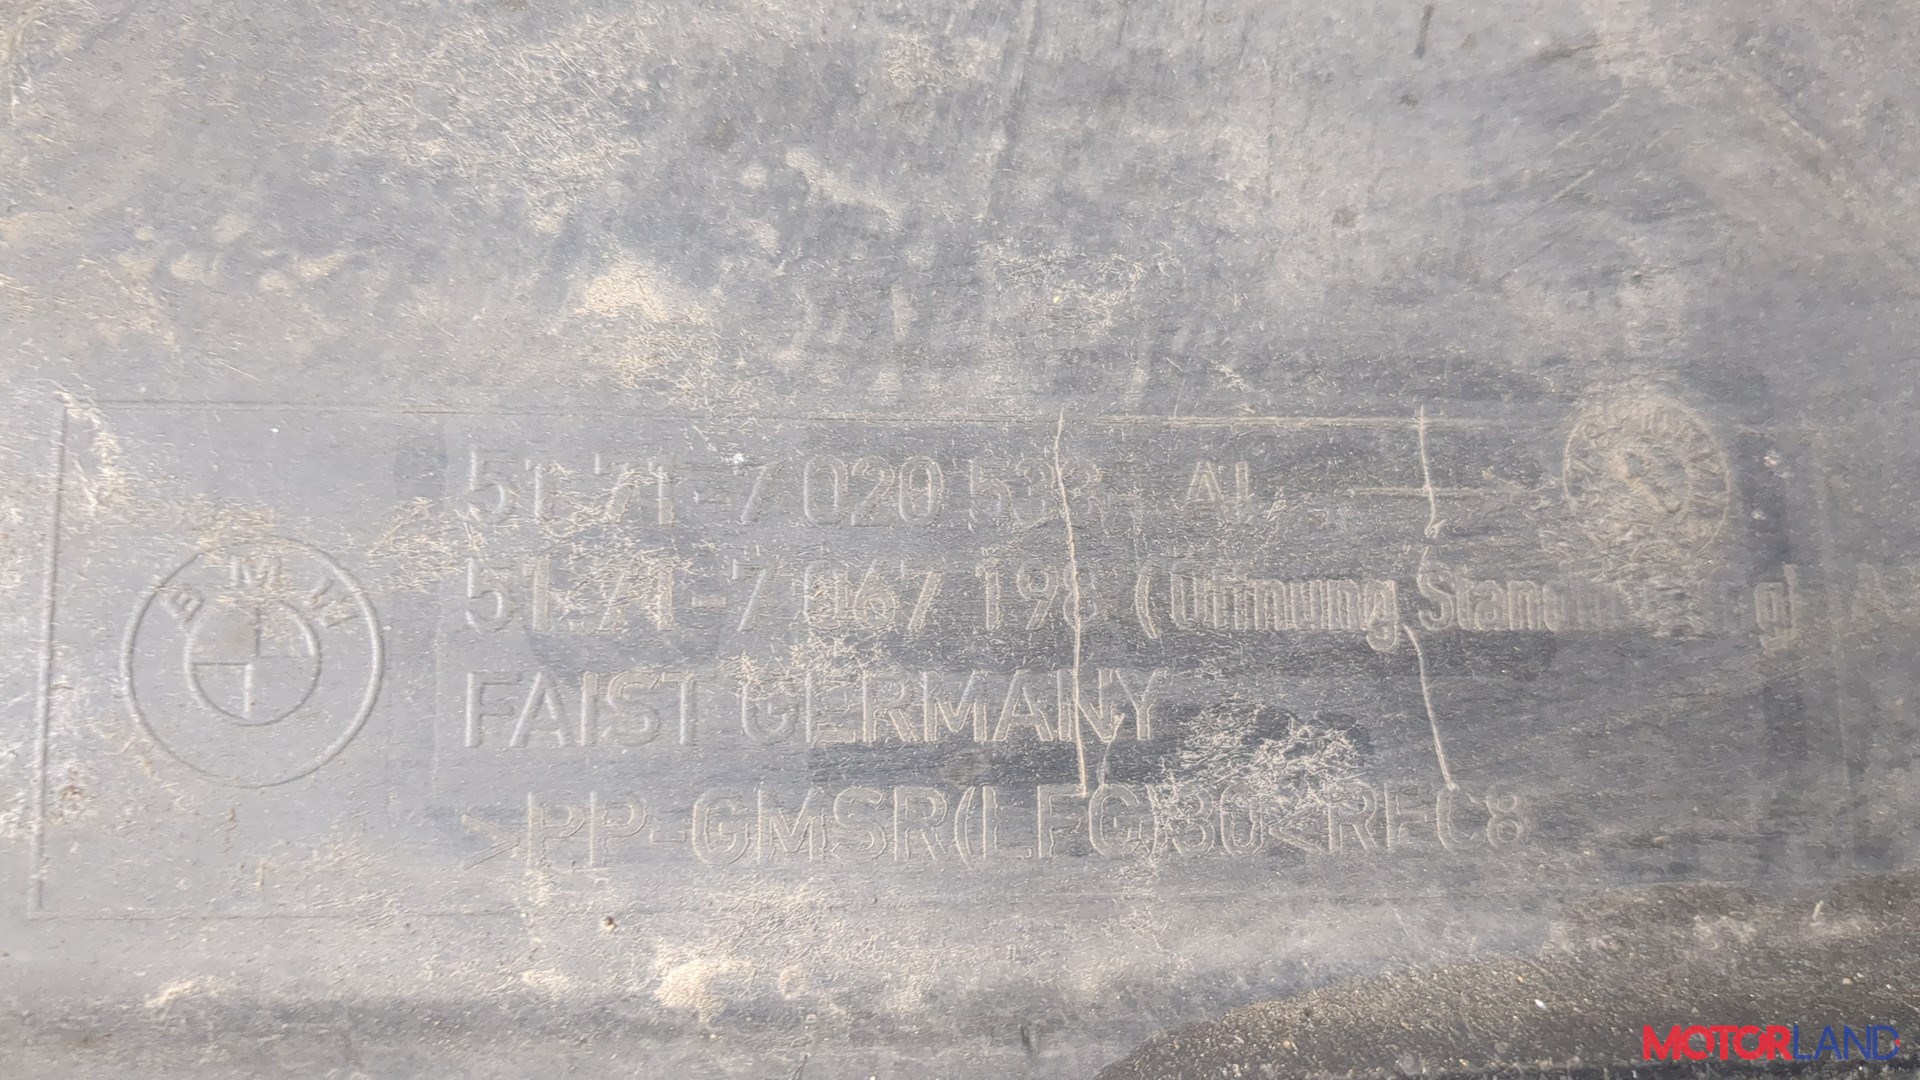 BMW
51.71-7 020 538- AI
51.71-7 067 198 (Öffnung
FAIST GERMANY
>PP-GMSR(LFG)30<REC8
MOTORLAND